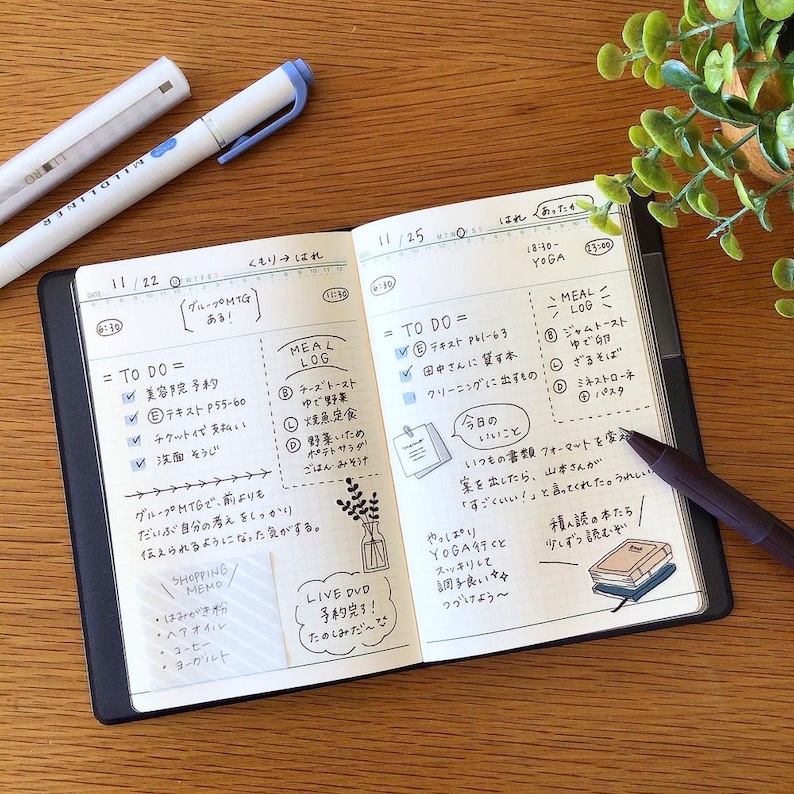 MILDLINER
DATE
11 / 22 M T W T F S S
くもり → はれ
6:30
グループMTG
ある!
11:30
= TO DO =
美容院予約
Ⓔテキスト P55-60
チケット代支払い
洗面そうじ
MEAL
LOG
Ⓑ チーズトースト
ゆで野菜
Ⓛ 焼魚定食
Ⓓ 野菜いため
ポテトサラダ
ごはん・みそ汁
グループMTGで、前よりも
だいぶ自分の考えをしっかり
伝えられるようになった気がする。
SHOPPING
MEMO
・はみがき粉
・ヘアオイル
・コーヒー
・ヨーグルト
LIVE DVD
予約完了!
たのしみだ〜
11 / 25 M T W T F S S
はれ
あったか
6:30
18:30-
YOGA
23:00
= TO DO =
Ⓔテキスト P61-63
田中さんに貸す本
クリーニングに出すもの
MEAL
LOG
Ⓑ ジャムトースト
ゆで卵
Ⓛ ざるそば
Ⓓ ミネストローネ
⊕ パスタ
今日の
いいこと
いつもの書類フォーマットを変
案を出したら、山本さんが
「すごくいい!」と言ってくれた。うれしい
やっぱり
YOGA行くと
スッキリして
調子良い
つづけよう〜
積ん読の本たち
少しずつ読むぞ
Book